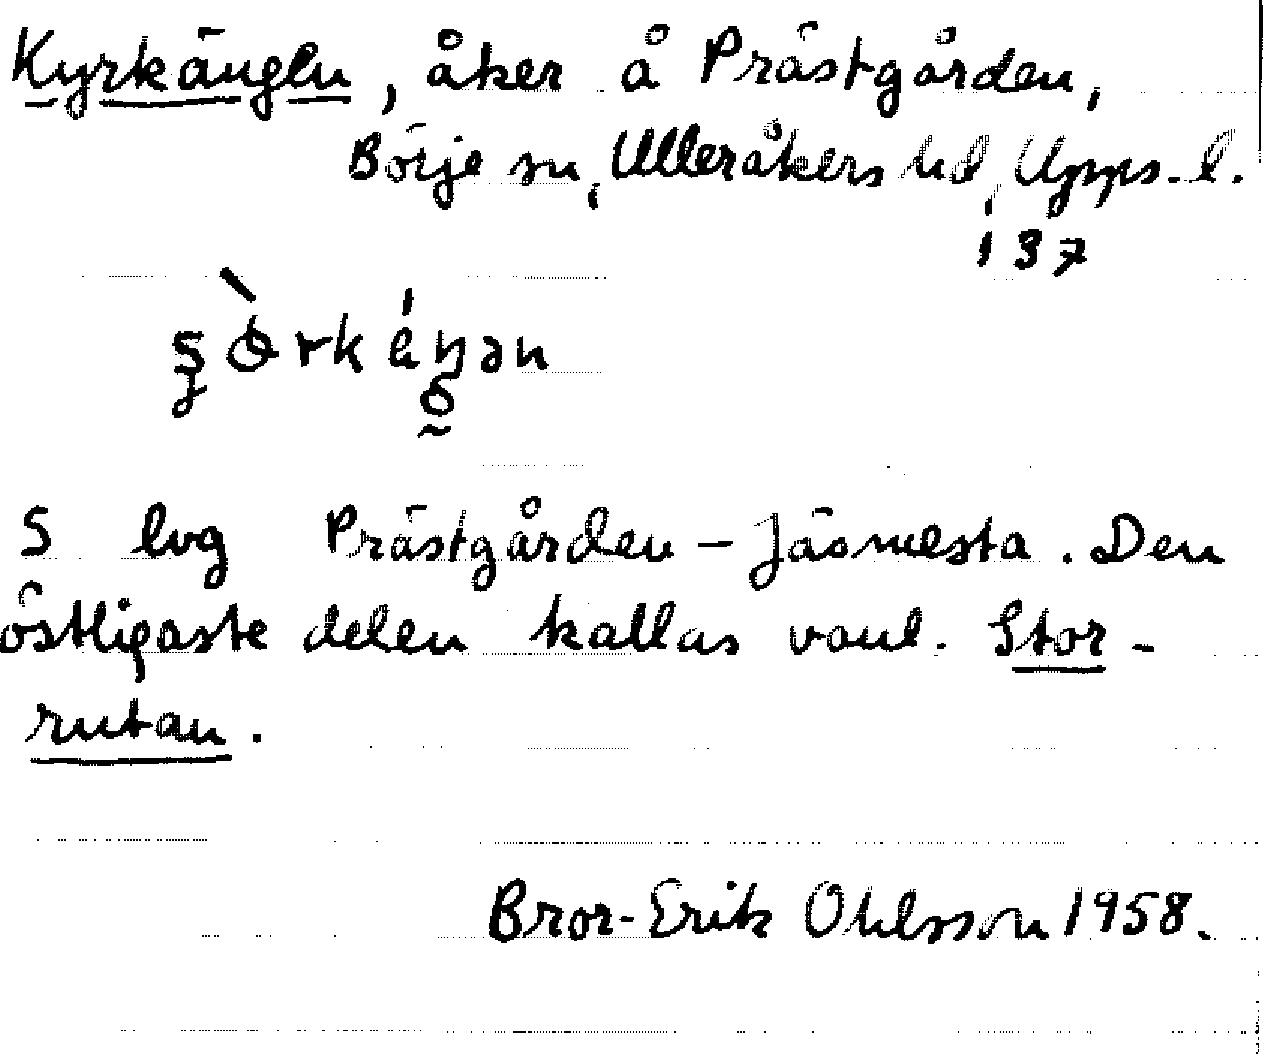 Kyrkängen, åker å Prästgården,
Börje sn, Ulleråkers hd, Upps. l.
137
S lvg Prästgården – Jäsmesta. Den
östligaste delen kallas vanl. Stor-
rutan.
Bror-Erik Ohlsson 1958.